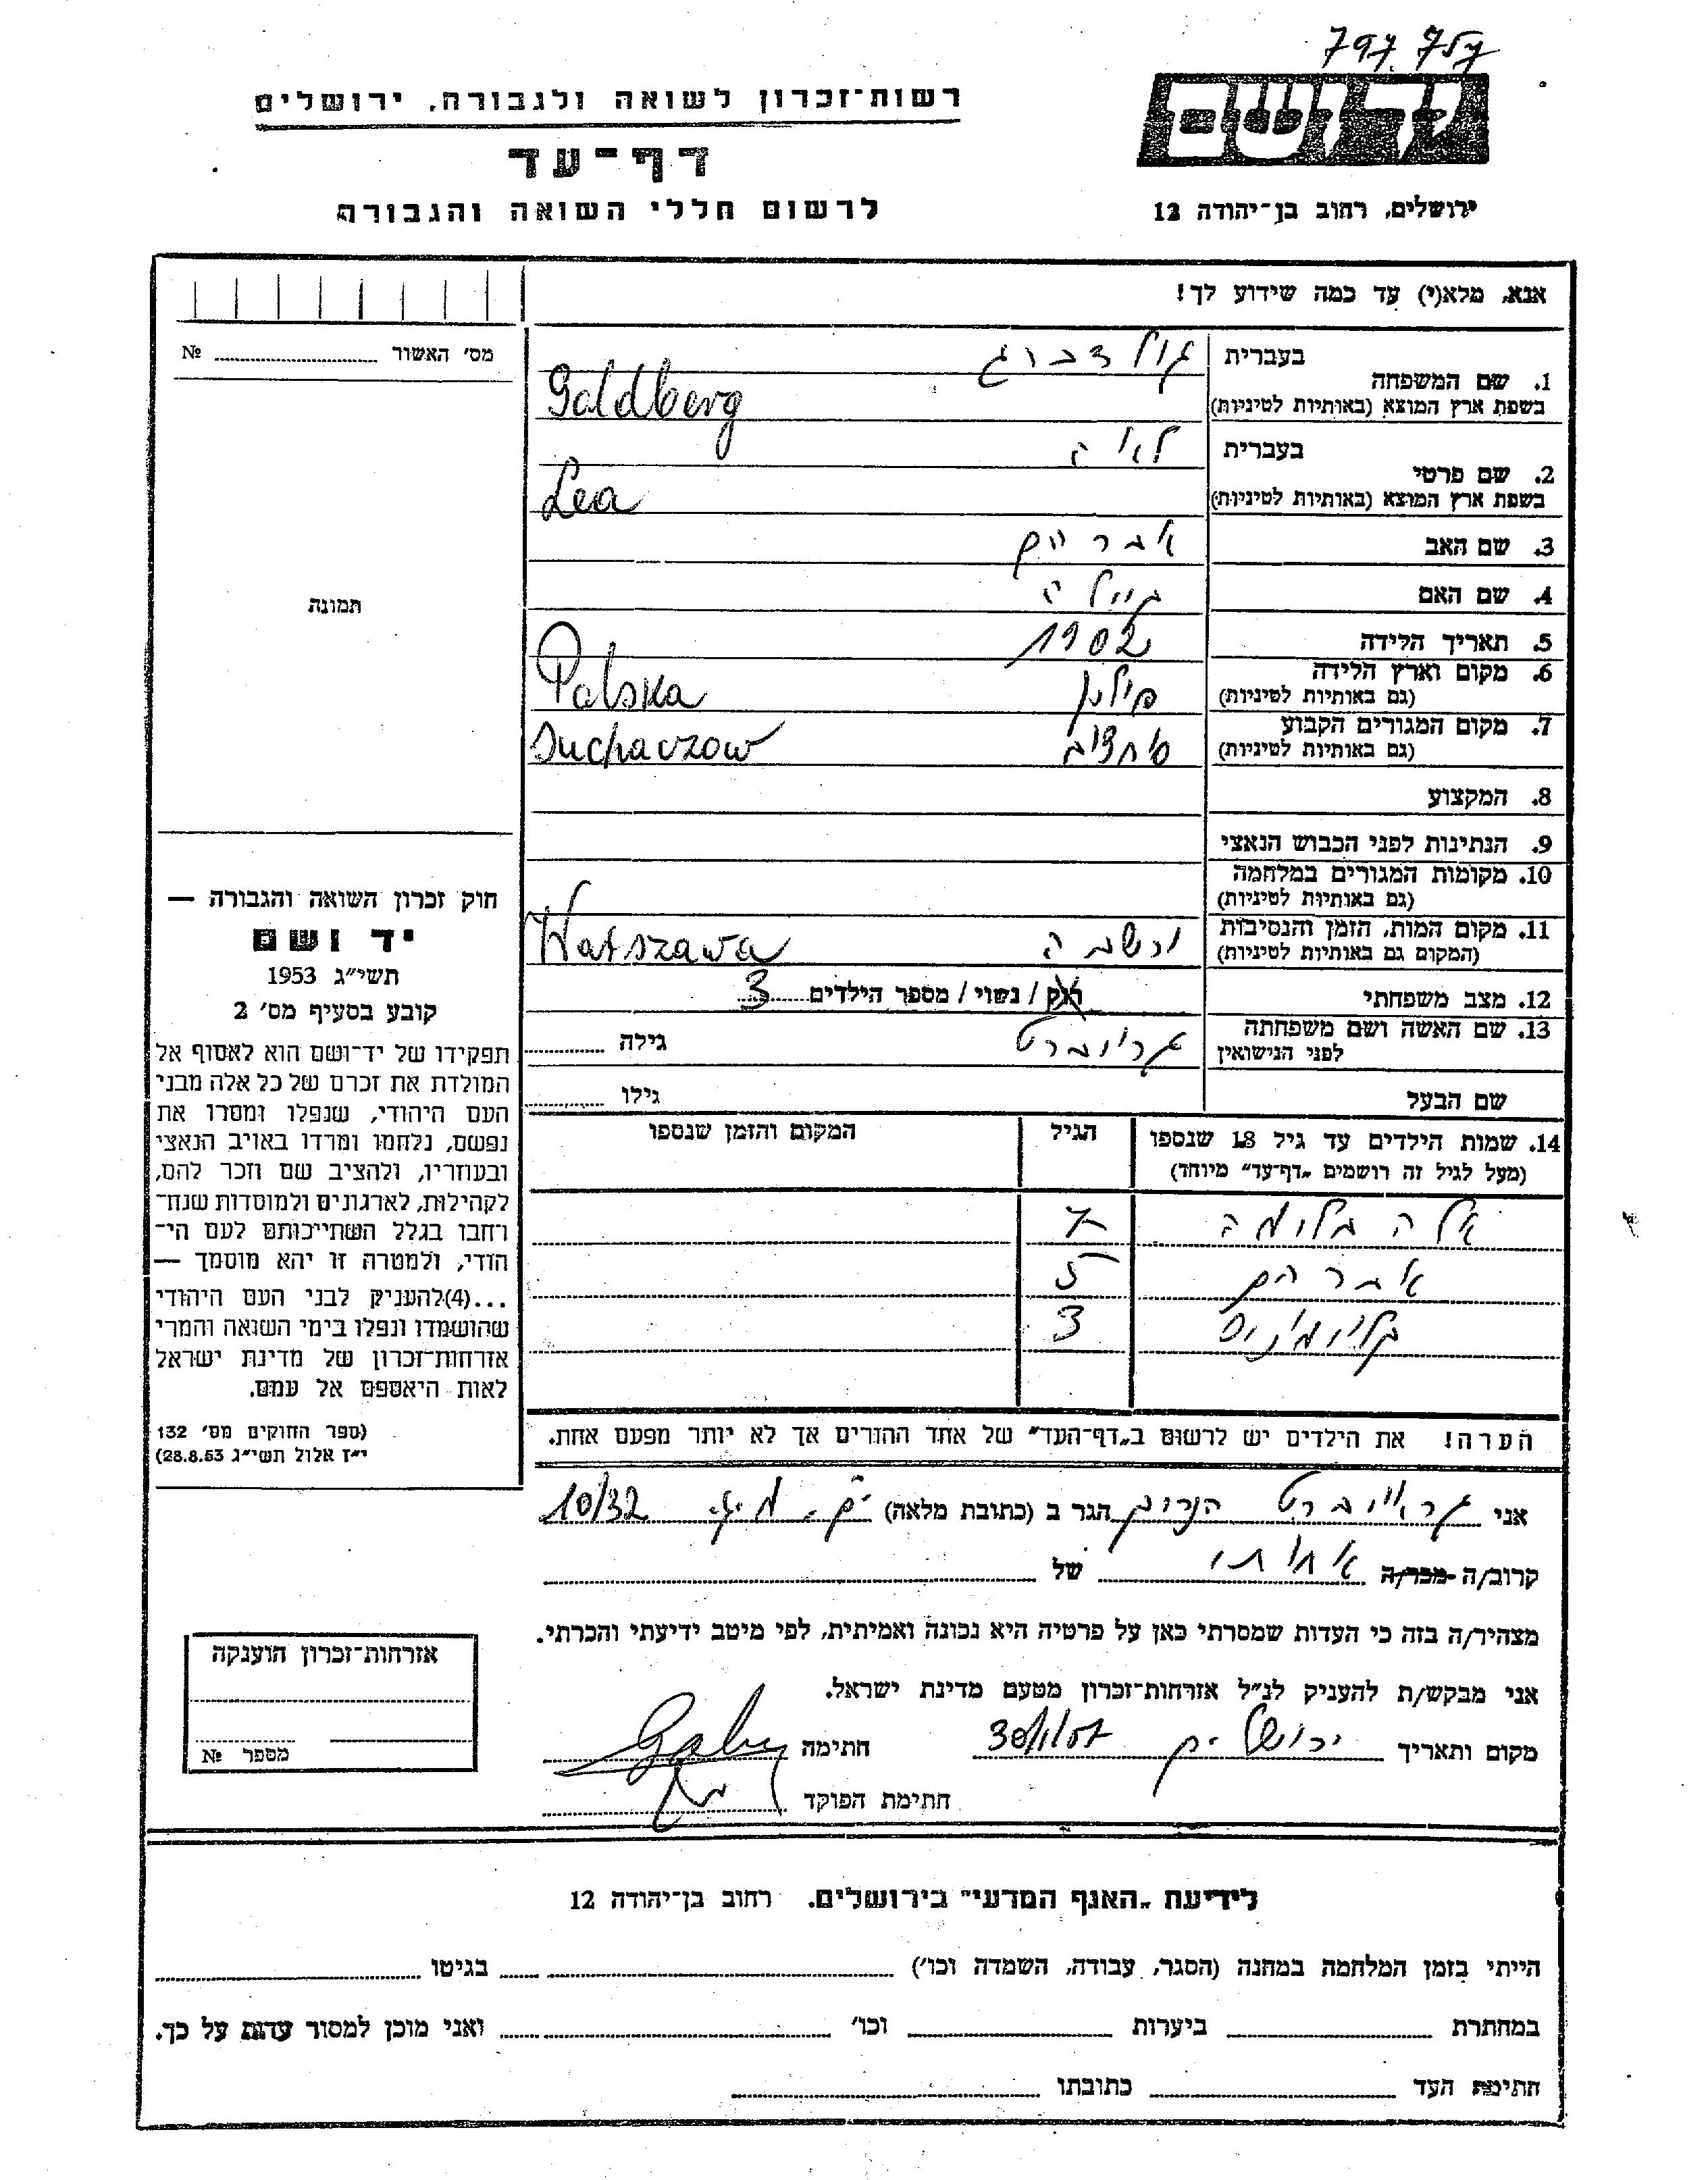 797 757
יד ושם
ירושלים, רחוב בן־יהודה 12
רשות־זכרון לשואה ולגבורה, ירושלים
דף־עד
לרשום חללי השואה והגבורה
אנא, מלא(י) עד כמה שידוע לך!
מס׳ האשור № 
תמונה
בעברית גולדברג
1. שם המשפחה
בשפת ארץ המוצא (באותיות לטיניות) Goldberg
בעברית לאה
2. שם פרטי
בשפת ארץ המוצא (באותיות לטיניות) Lea
3. שם האב אברהם
4. שם האם
5. תאריך הלידה 1902
6. מקום וארץ הלידה פולין Polska
(גם באותיות לטיניות)
7. מקום המגורים הקבוע Suchaczow
(גם באותיות לטיניות)
8. המקצוע
9. הנתינות לפני הכבוש הנאצי
10. מקומות המגורים במלחמה
(גם באותיות לטיניות)
11. מקום המות, הזמן והנסיבות ורשבה Warszawa
(המקום גם באותיות לטיניות)
12. מצב משפחתי רוק / נשוי / מספר הילדים 3
13. שם האשה ושם משפחתה גרויברט גילה
לפני הנישואין
שם הבעל גילו
14. שמות הילדים עד גיל 18 שנספו הגיל המקום והזמן שנספו
(מעל לגיל זה רושמים „דף־עד״ מיוחד)
אלה בלומה 7
אברהם 5
3
הערה! את הילדים יש לרשום ב„דף־העד״ של אחד ההורים אך לא יותר מפעם אחת.
חוק זכרון השואה והגבורה —
יד ושם
תשי״ג 1953
קובע בסעיף מס׳ 2
תפקידו של יד־ושם הוא לאסוף אל
המולדת את זכרם של כל אלה מבני
העם היהודי, שנפלו ומסרו את
נפשם, נלחמו ומרדו באויב הנאצי
ובעוזריו, ולהציב שם וזכר להם,
לקהילות, לארגונים ולמוסדות שנח־
רחבו בגלל השתייכותם לעם הי־
הודי, ולמטרה זו יהא מוסמך —
...(4)להעניק לבני העם היהודי
שהושמדו ונפלו בימי השואה והמרי
אזרחות־זכרון של מדינת ישראל
לאות היאספם אל עמם.
(ספר החוקים מס׳ 132
י״ז אלול תשי״ג 28.8.53)
אני גראויברט הגר ב (כתובת מלאה) 10/32
קרוב/ה מכר/ה אחותו של
מצהיר/ה בזה כי העדות שמסרתי כאן על פרטיה היא נכונה ואמיתית, לפי מיטב ידיעתי והכרתי.
אני מבקש/ת להעניק לנ״ל אזרחות־זכרון מטעם מדינת ישראל.
מקום ותאריך ירושלים 30/1/57 חתימה
חתימת הפוקד
אזרחות־זכרון הוענקה
מספר №
לידיעת „האגף המדעי״ בירושלים. רחוב בן־יהודה 12
הייתי בזמן המלחמה במחנה (הסגר, עבודה, השמדה וכו׳) בגיטו
במחתרת ביערות וכו׳ ואני מוכן למסור עדות על כך.
חתימת העד כתובתו